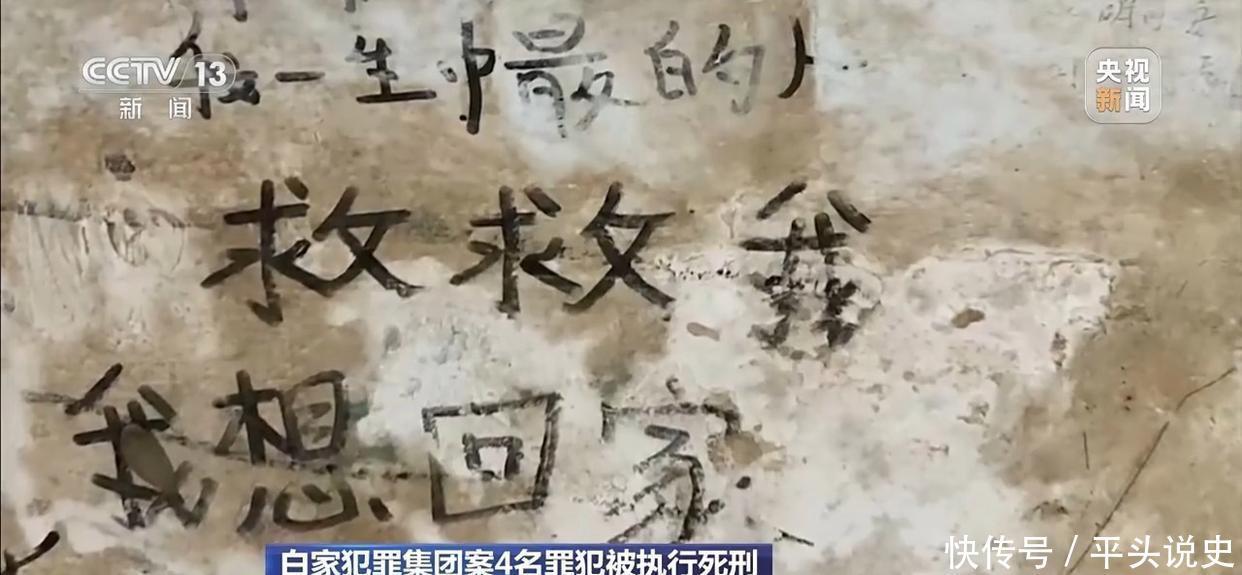 CCTV 13
新闻
央视
新闻
一生中最的
救救我
我想回家
白家犯罪集团案4名罪犯被执行死刑
快传号 / 平头说史